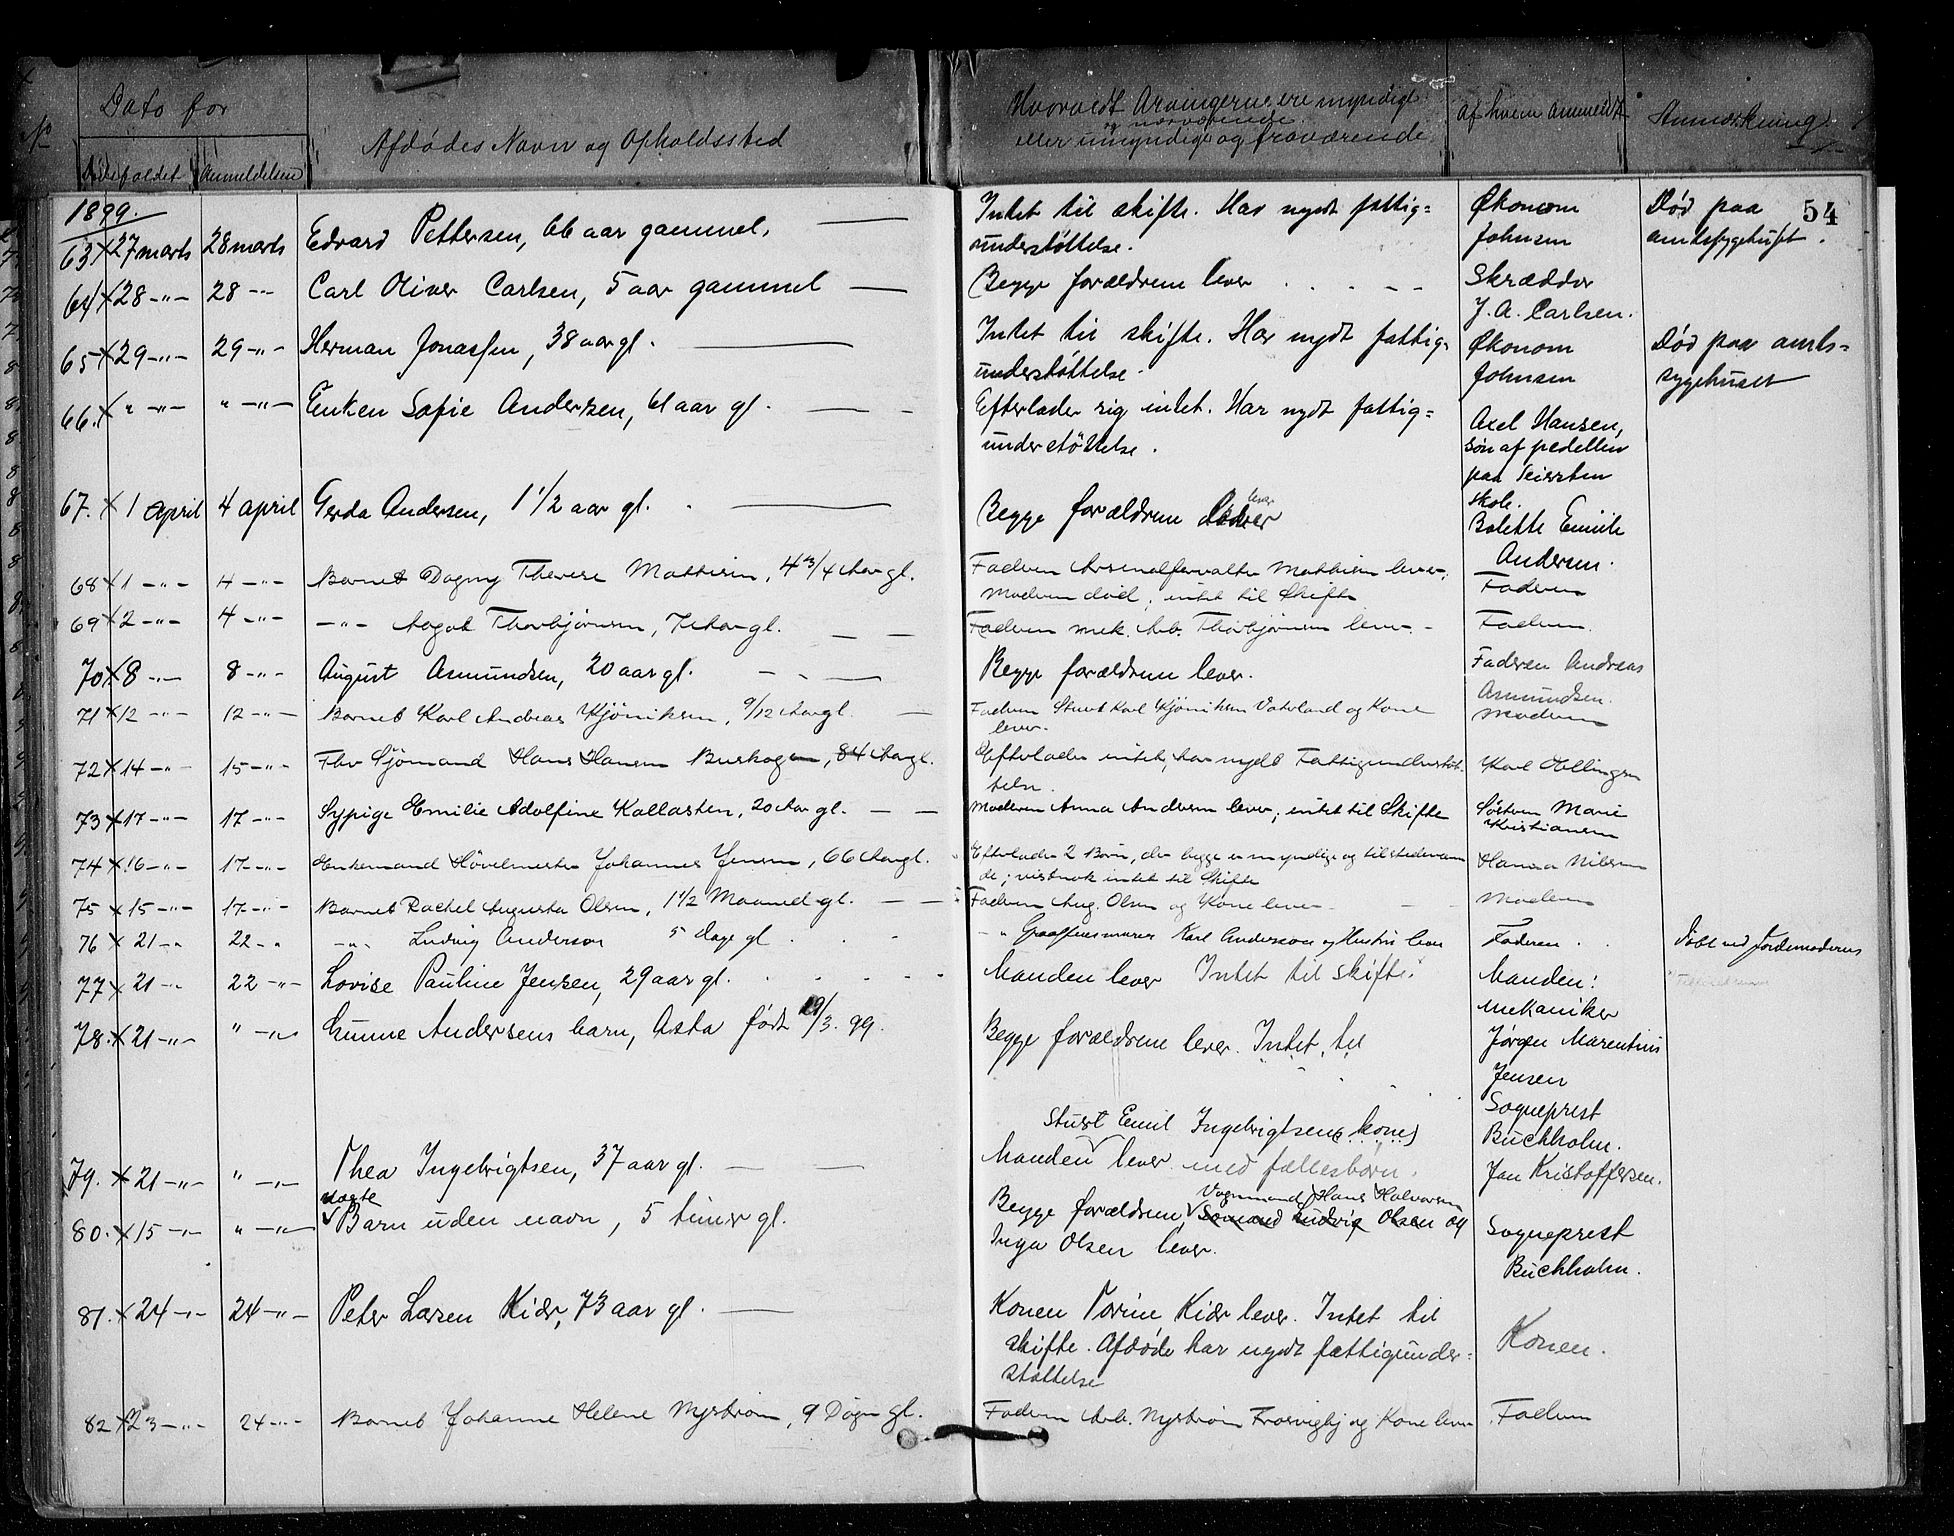 No
Dato for
Dödsfaldet
Anmeldelsen
Afdødes Navn og Opholdssted
Hvorvidt Arvingerne ere myndige
og nærværende
eller umyndige og fraværende
Af hvem Anmeldt
Anmærkning
54
1899.
63 X 27 marts 28 marts Edvard Pettersen, 66 aar gammel. Intet til skifte. Har nydt fattig= Økonom Død paa
understøttelse. Johnsen amtssygehuset.
64 X 28 -"- 28 -"- Carl Oliver Carlsen, 5 aar gammel Begge forældrene lever Skrædder
J. A. Carlsen.
65 X 29 -"- 29 -"- Herman Jonassen, 38 aar gl. Intet til skifte. Har nydt fattig= Økonom Død paa amts=
understøttelse. Johnsen sygehuset
66. X " -"- " -"- Enken Sofie Andersen, 61 aar gl. Efterlader sig intet. Har nydt fattig=
understøttelse. Axel Hansen,
søn af pedellen
paa Teiersten
skole.
67. X 1 april 4 april Gerda Andersen, 1 1/2 aar gl. Begge forældrene lever Bolette Emilie
Andersen.
68 X 1 -"- 4 -"- Barnet Dagny Therese Mathisen, 4 3/4 Aar gl. Faderen Arsenalforvalter Mathisen lever, Faderen
Moderen død, intet til Skifte
69 X 2 -"- 4 -"- -"- Aagot Thorbjørnsen, 7 Aar gl. Faderen mek. Arb. Thorbjørnsen lever. Faderen.
70 X 8 -"- 8 -"- August Asmundsen, 20 aar gl. Begge forældrene lever. Faderen Andreas
Asmundsen.
71 X 12 -"- 12 -"- Barnet Karl Andreas Kjöniksen, 9/12 Aar gl. Faderen Stuert Karl Kjöniksen Vaterland og Kone Moderen
lever.
72 X 14 -"- 15 -"- Fhv Sjömand Hans Hansen Buskogen, 84 Aar gl. Efterlader intet, har nydt Fattigunderstöt-
telse. Karl Ellingsen
73 X 17 -"- 17 -"- Sypige Emilie Adolfine Kallasten, 20 Aar gl. Moderen Anna Andersen lever, intet til Skifte Søstren Marie
Kristiansen
74 X 16 -"- 17 -"- Enkemand Hövelmester Johannes Jensen, 66 Aar gl. Efterlader 2 Börn, der begge er myndige og tilstedeværen
de; vistnok intet til Skifte Hanna Nilsen
75 X 15 -"- 17 -"- Barnet Rachel Augusta Olsen, 1 1/2 Maaned gl. Faderen Aug. Olsen og Kone lever Moderen
76 X 21 -"- 22 -"- -"- Ludvig Anderson 5 dage gl. -" Karl Anderson og Hustru lever Faderen. Døbt ved Jordemoderen
77 X 21 -"- 22 -"- Lovise Pauline Jensen, 29 aar gl. Manden lever Intet til skifte. Manden:
mekaniker
Jørgen Marentius
Jensen
78. X 21 -"- " -"- Gunne Andersens barn, Asta født 19/3. 99. Begge forældrene lever. Intet til
" " "
Sogneprest
Buchholm.
Stuert Emil Ingebrigtsen (kone)
79. X 21 -"- " -"- Thea Ingebrigtsen, 37 aar gl. Manden lever med fællesbørn. Jan Kristoffersen.
uægte Vognmand Hans Halvorsen
80. X 15 -"- " -"- Barn uden navn, 5 timer gl. Begge forældrene Sømand Ludvig Olsen og Sogneprest
Inga Olsen lever. Buchholm.
81. X 24 -"- 24 -"- Peter Larsen Kiær, 73 aar gl. Konen Torine Kiær lever. Intet til Konen.
skifte. Afdøde har nydt fattigunder=
støttelse
82 X 23 -"- 24 -"- Barnet Johanne Helene Nyström, 9 Døgn gl. Faderen Arb. Nyström og Kone lever Faderen